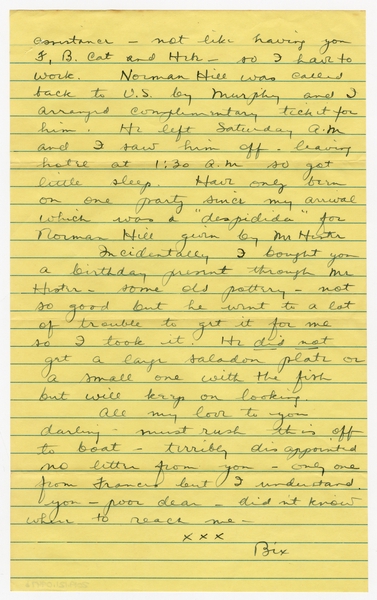 assistance - not like having you
F, B. Cat and Hck - so I have to
work. Norman Hill was called
back to U.S. by Murphy and I
arranged complimentary ticket for
him. He left Saturday A.M
and I saw him off - leaving
hotel at 1:30 A.M so got
little sleep. Have only been
on one party since my arrival
which was a "despidida" for
Norman Hill given by Mr Hester
Incidentally I bought you
a birthday present through Mr
Hester - some old pottery - not
so good but he went to a lot
of trouble to get it for me
so I took it. He did not
get a large saladon plate or
a small one with the fish
but will keep on looking.
All my love to you
darling - must rush this off
to boat - terribly disappointed
no letter from you - only one
from Frances but I understand.
you - poor dear - didn't know
when to reach me -
x x x
Bix